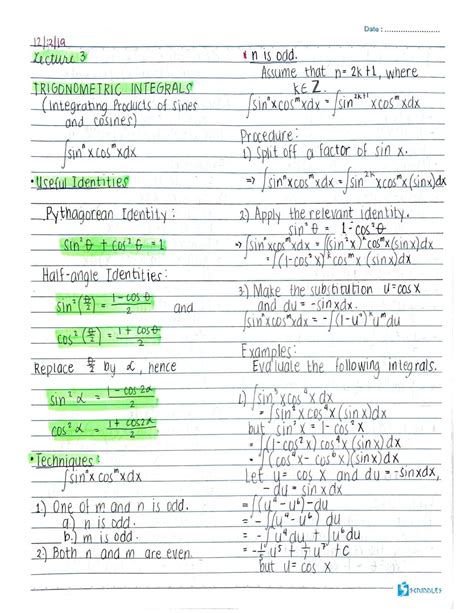 Date :
12/2/19
Lecture 3
TRIGONOMETRIC INTEGRALS
(Integrating Products of sines
and cosines)
∫sinⁿxcosᵐxdx
• Useful Identities
Pythagorean Identity :
sin²θ + cos²θ = 1
Half-angle Identities:
sin²(θ/2) = 1-cosθ/2 and
cos²(θ/2) = 1+cosθ/2
Replace θ/2 by α, hence
sin²α = 1-cos2α/2
cos²α = 1+cos2α/2
• Techniques :
∫sinⁿxcosᵐxdx
1.) One of m and n is odd.
a.) n is odd.
b.) m is odd.
2.) Both n and m are even.
* n is odd.
Assume that n=2k+1, where
k∈Z.
∫sinⁿxcosᵐxdx = ∫sin²ᵏ⁺¹xcosᵐxdx
Procedure:
1) Split off a factor of sin x.
⇒ ∫sinⁿxcosᵐxdx = ∫sin²ᵏxcosᵐx(sinx)dx
2) Apply the relevant identity.
sin²θ = 1-cos²θ
⇒ ∫sinⁿxcosᵐxdx = ∫(sin²x)ᵏcosᵐx(sinx)dx
= ∫(1-cos²x)ᵏcosᵐx(sinx)dx
3) Make the substitution u=cosx
and du = -sinxdx.
∫sinⁿxcosᵐxdx = -∫(1-u²)ᵏuᵐdu
Examples:
Evaluate the following integrals.
1.) ∫sin³xcos⁴xdx
= ∫sin²xcos⁴x(sinx)dx
but sin²x = 1-cos²x
= ∫(1-cos²x)cos⁴x(sinx)dx
= ∫(cos⁴x-cos⁶x)(sinx)dx
Let u= cosx and du = -sinxdx,
-du = sinxdx
= ∫(u⁴-u⁶)-du
= -∫(u⁴-u⁶)du
= -∫u⁴du + ∫u⁶du
= -1/5u⁵ + 1/7u⁷ + C
but u = cosx